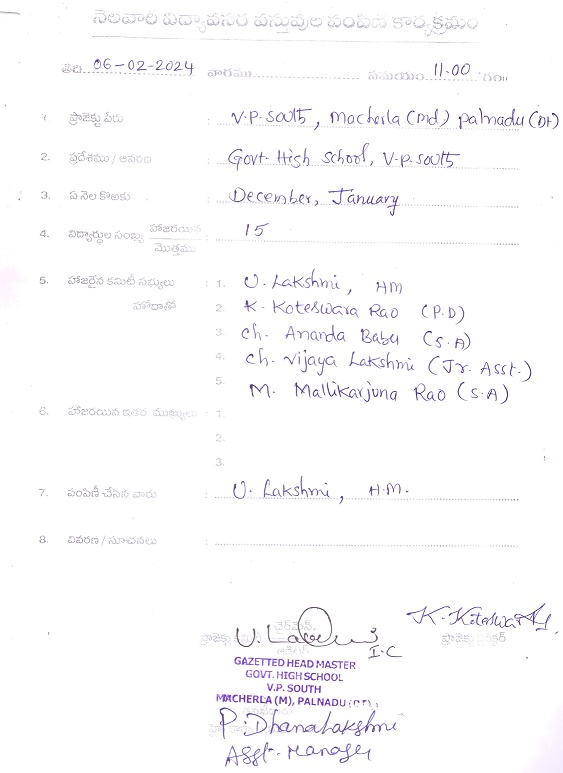 నెలవారి విద్యావసర వస్తువుల పంపిణి కార్యక్రమం
తేది 06-02-2024 వారము సమయం 11.00 గం॥
1. ప్రాజెక్టు పేరు : V.P. South, Macherla (Md) Palnadu (Dt)
2. ప్రదేశము / ఆవరణ : Govt. High School, V.P. South
3. ఏ నెల కొఱకు : December, January
4. విద్యార్థుల సంఖ్య హాజరయిన / మొత్తము : 15
5. హాజరైన కమిటీ సభ్యులు : 1. U. Lakshmi, HM
హోదాతో 2. K. Koteswara Rao (P.D)
3. Ch. Ananda Babu (S.A)
4. Ch. Vijaya Lakshmi (Jr. Asst.)
5. M. Mallikarjuna Rao (S.A)
6. హాజరయిన ఇతర ముఖ్యులు : 1.
2.
3.
7. పంపిణీ చేసిన వారు : U. Lakshmi, H.M.
8. వివరణ / సూచనలు :
చైర్మైన్,
K. Koteswar
ప్రాజెక్టు U. Lakshmi ప్రాజెక్టు
I.C
GAZETTED HEAD MASTER
GOVT. HIGH SCHOOL
V.P. SOUTH
MACHERLA (M), PALNADU (DT),
P. Dhanalakshmi
Asst. Manager